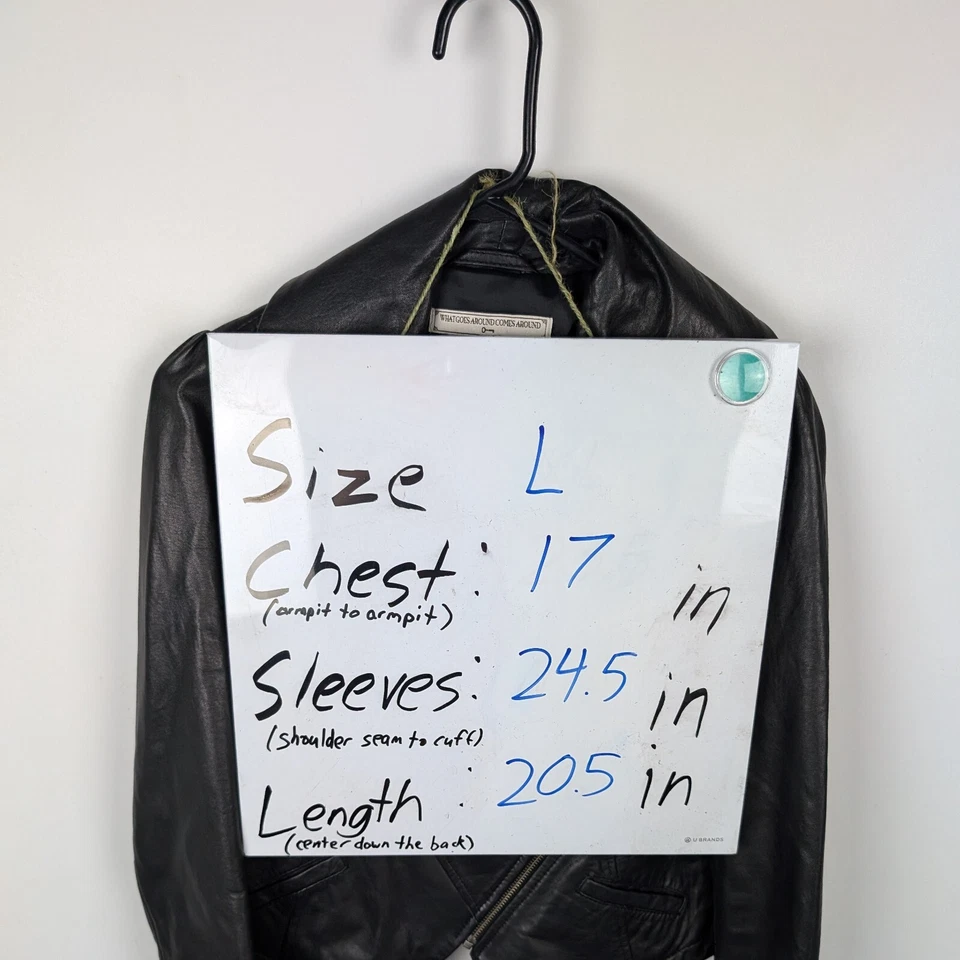 WHAT GOES AROUND COMES AROUND
Size L
Chest: 17 in
(armpit to armpit)
Sleeves: 24.5 in
(shoulder seam to cuff)
Length: 20.5 in
(center down the back)
U BRANDS